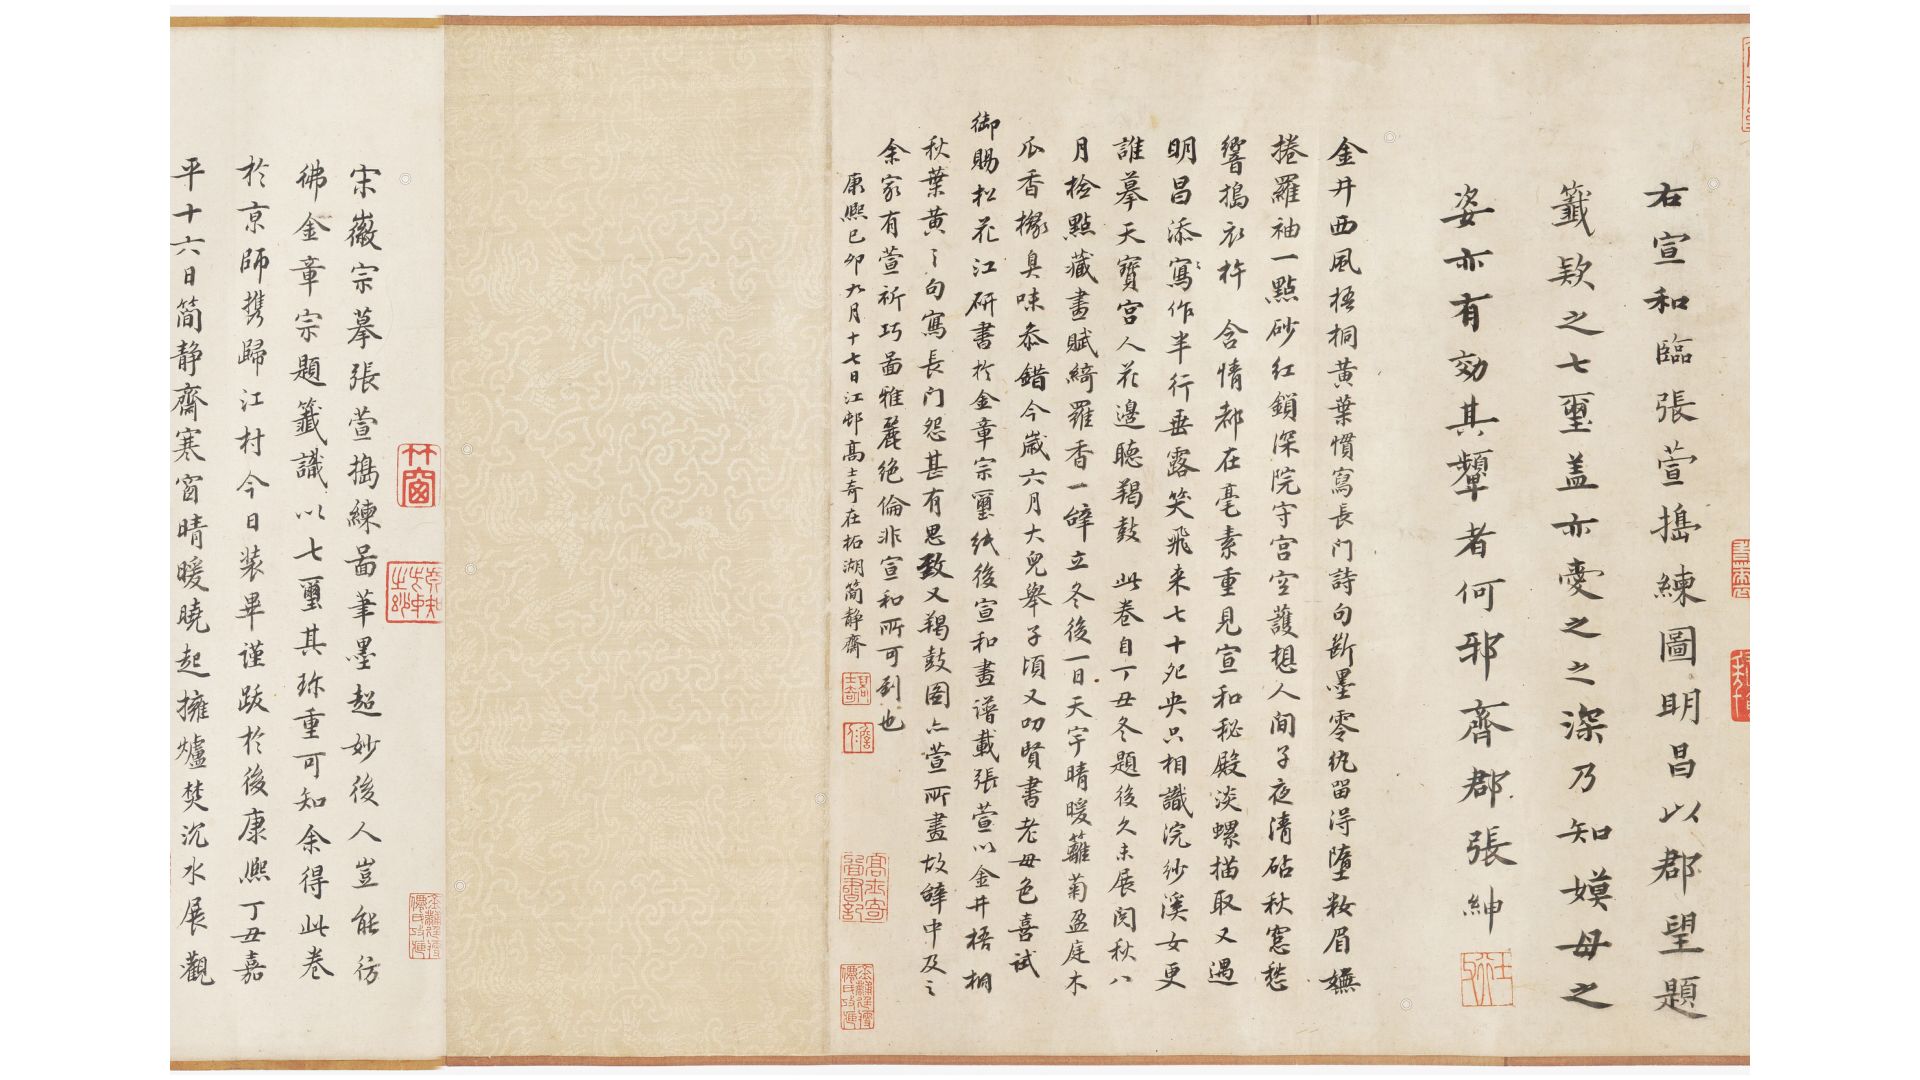 右宣和臨張萱搗練圖明昌以郡望題
籤款之七璽盖亦愛之之深乃知嫫母之
姿亦有效其顰者何邪齊郡張紳
金井西風梧桐黃葉慣寫長门詩句斷墨零紈留得墮粧眉嫵
捲羅袖一點砂紅鎖深院守宮空護想人間子夜清砧秋窓愁
響搗衣杵 含情都在毫素重見宣和秘殿淡螺描取又遇
明昌添寫作半行垂露笑飛来七十死央只相識浣紗溪女更
誰摹天寶宮人花邊聽羯鼓 此卷自丁丑冬題後久未展閱秋八
月檢點藏畫賦綺羅香一闋立冬後一日天宇晴暖蘺菊盈庭木
瓜香櫞臭味叅錯今歲六月大兒舉子頃又叨賢書老母色喜試
御賜松花江研書於金章宗璽紙後宣和畫譜載張萱以金井梧桐
秋葉黃之句寫長门怨甚有思致又羯鼓圖亦萱所畫故闋中及之
余家有萱祈巧啚雅麗絕倫非宣和所可到也
康熙己卯九月十七日江邨高士奇在柘湖簡静齋
宋徽宗摹張萱搗練啚筆墨超妙後人豈能彷
彿金章宗題籤識以七璽其珎重可知余得此卷
於京師携歸江村今日装畢謹跋於後康熙丁丑嘉
平十六日簡静齋寒窗晴暖曉起擁爐焚沉水展觀